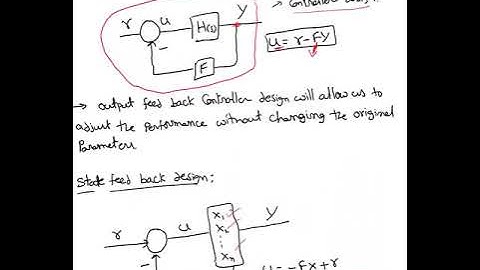 r u H(s) Y
u = r - FY
-
F
→ output feed back Controller design will allow us to
adjust the performance without changing the original
Parameters
State feed back design:
r u Y
x₁
x₂
⋮
xₙ
-
u = -Fx+r